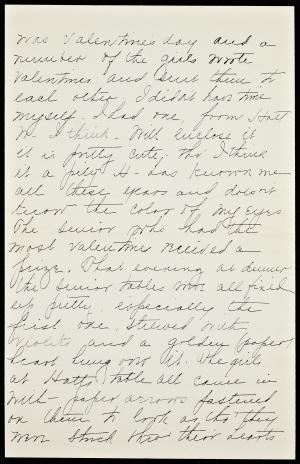 was Valentines day and a
number of the girls wrote
Valentines and sent them to
each other, I didn't have time
myself. I had one, from Hatt
I think. Will enclose it
it is pretty cute, tho' I think
it a pity H- has known me
all these years and doesn't
know the color of my eyes
The Senior who had the
most Valentines received a
prize. That evening at dinner
the Senior tables were all fixed
up pretty, especially the
first one, strewed with
violets and a golden paper
heart hung over it. The girls
at Hatt's table all came in
with paper arrows fastened
on them to look as tho' they
were stuck thro' their hearts